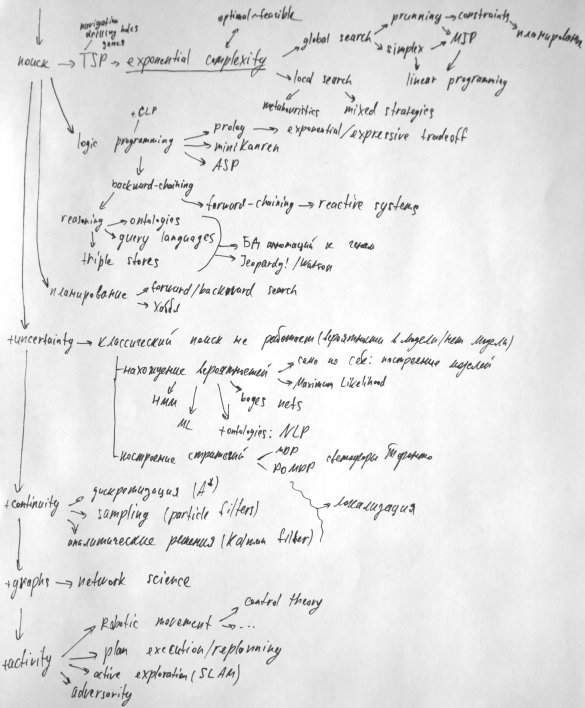 navigation
drilling holes
genes
optimal-feasible
поиск → TSP → exponential complexity
global search
prunning → constraints
планирование
simplex
MIP
linear programming
local search
metaheuristics
mixed strategies
+ CLP
logic programming
prolog → exponential/expressive tradeoff
miniKanren
ASP
backward-chaining
forward-chaining → reactive systems
reasoning → ontologies
query languages
triple stores
БД аннотаций к генам
Jeopardy!/Watson
планирование
forward/backward search
Хаббл
+uncertainty → классический поиск не работает (вероятности в модели/нет модели)
нахождение вероятностей
само по себе: построение моделей
Maximum Likelihood
HMM
ML
bayes nets
+ontologies: NLP
построение стратегий
MDP
POMDP
светофоры Торонто
+continuity
дискретизация (A*)
sampling (particle filters)
аналитические решения (Kalman filter)
локализация
+graphs → network science
+activity
Robotic movement
control theory
...
plan execution/replanning
active exploration (SLAM)
adversarity